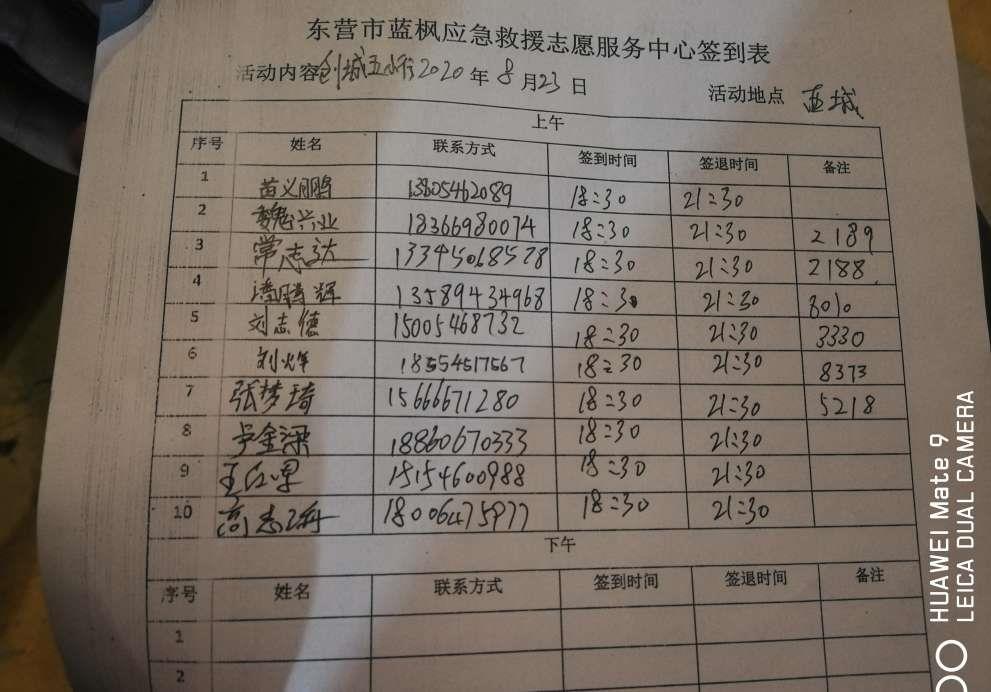 东营市蓝枫应急救援志愿服务中心签到表
活动内容创城五小行2020年8月23日 活动地点 西城
上午
序号 姓名 联系方式 签到时间 签退时间 备注
1 苗义鹏 13805462089 18:30 21:30
2 魏兴业 18366980074 18:30 21:30 2189
3 常志达 13345068528 18:30 21:30 2188
4 潘腾辉 13589434968 18:30 21:30 8010
5 刘志德 15005468732 18:30 21:30 3330
6 刘火军 18554517567 18:30 21:30 8373
7 张梦琦 15666671280 18:30 21:30 5218
8 金梁 18860670333 18:30 21:30
9 王红军 18154600988 18:30 21:30
10 高志 18006475977 18:30 21:30
下午
序号 姓名 联系方式 签到时间 签退时间 备注
1
2
HUAWEI Mate 9
LEICA DUAL CAMERA